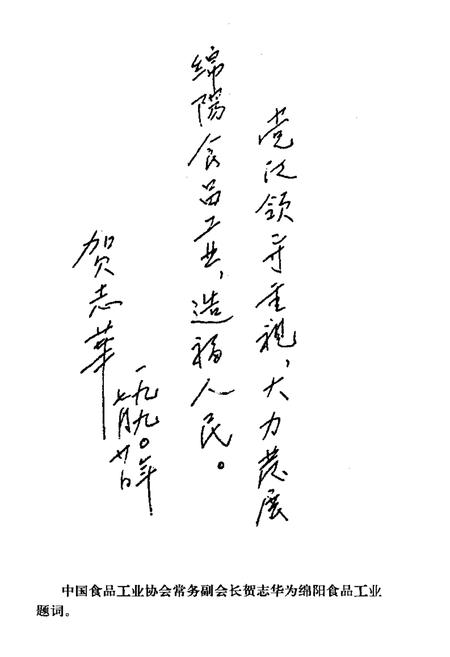 党政领导重视，大力发展
绵阳食品工业，造福人民。
贺志華
一九九〇年
七月廿日
中国食品工业协会常务副会长贺志华为绵阳食品工业
题词。